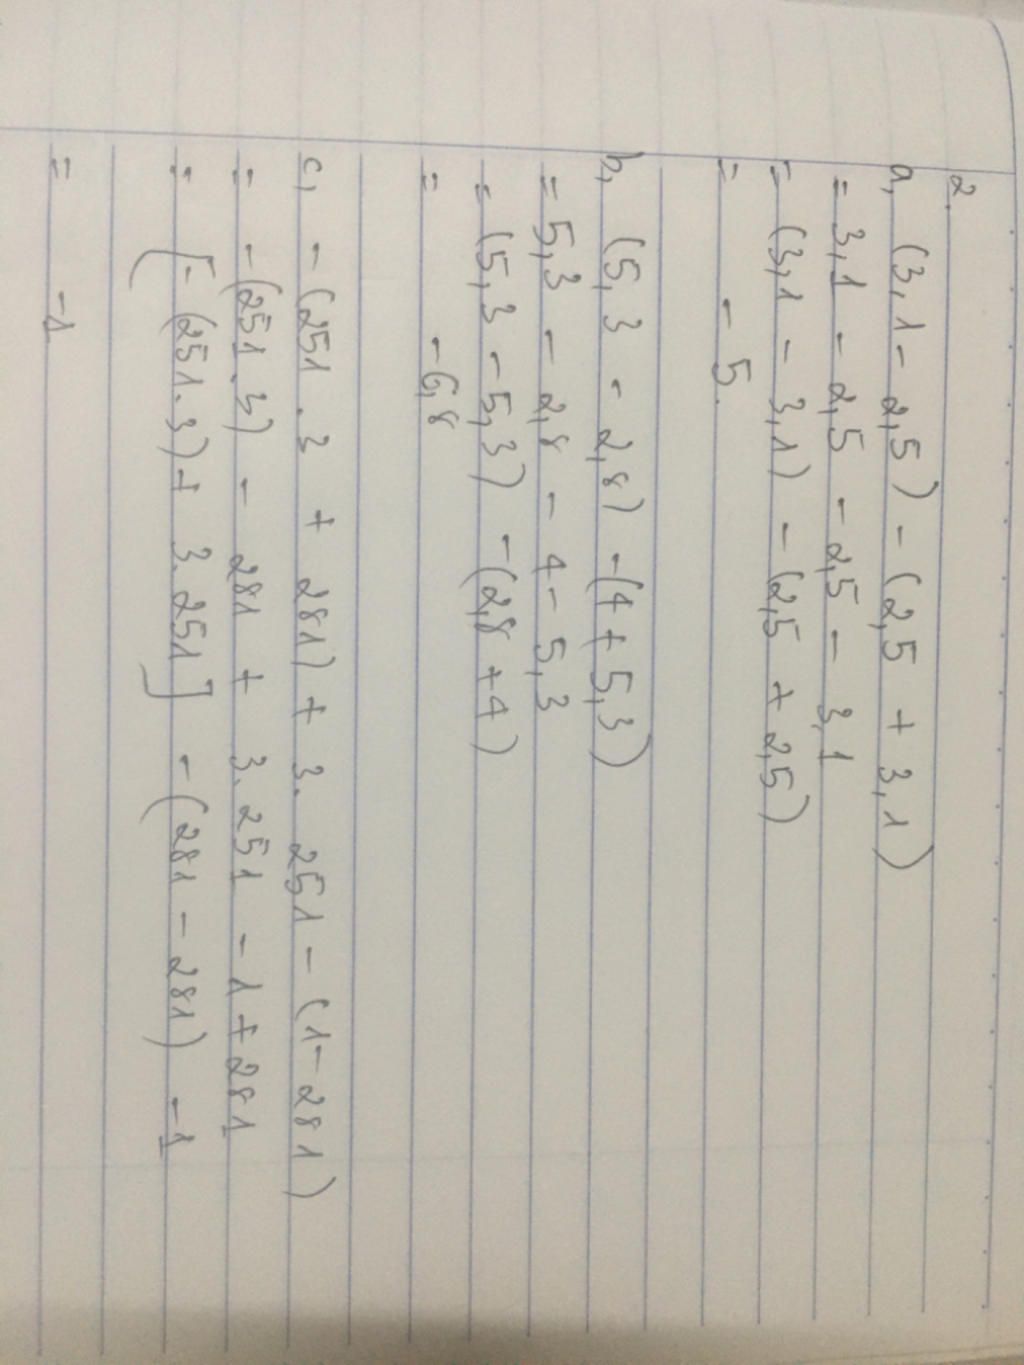 2.
a, (3,1 - 2,5) - (2,5 + 3,1)
= 3,1 - 2,5 - 2,5 - 3,1
= (3,1 - 3,1) - (2,5 + 2,5)
= - 5.
b, (5,3 - 2,8) - (4 + 5,3)
= 5,3 - 2,8 - 4 - 5,3
= (5,3 - 5,3) - (2,8 + 4)
= - 6,8
c, - (251 . 3 + 281) + 3. 251 - (1 - 281)
= - (251.3) - 281 + 3. 251 - 1 + 281
= [- (251.3) + 3. 251] - (281 - 281) - 1
= - 1